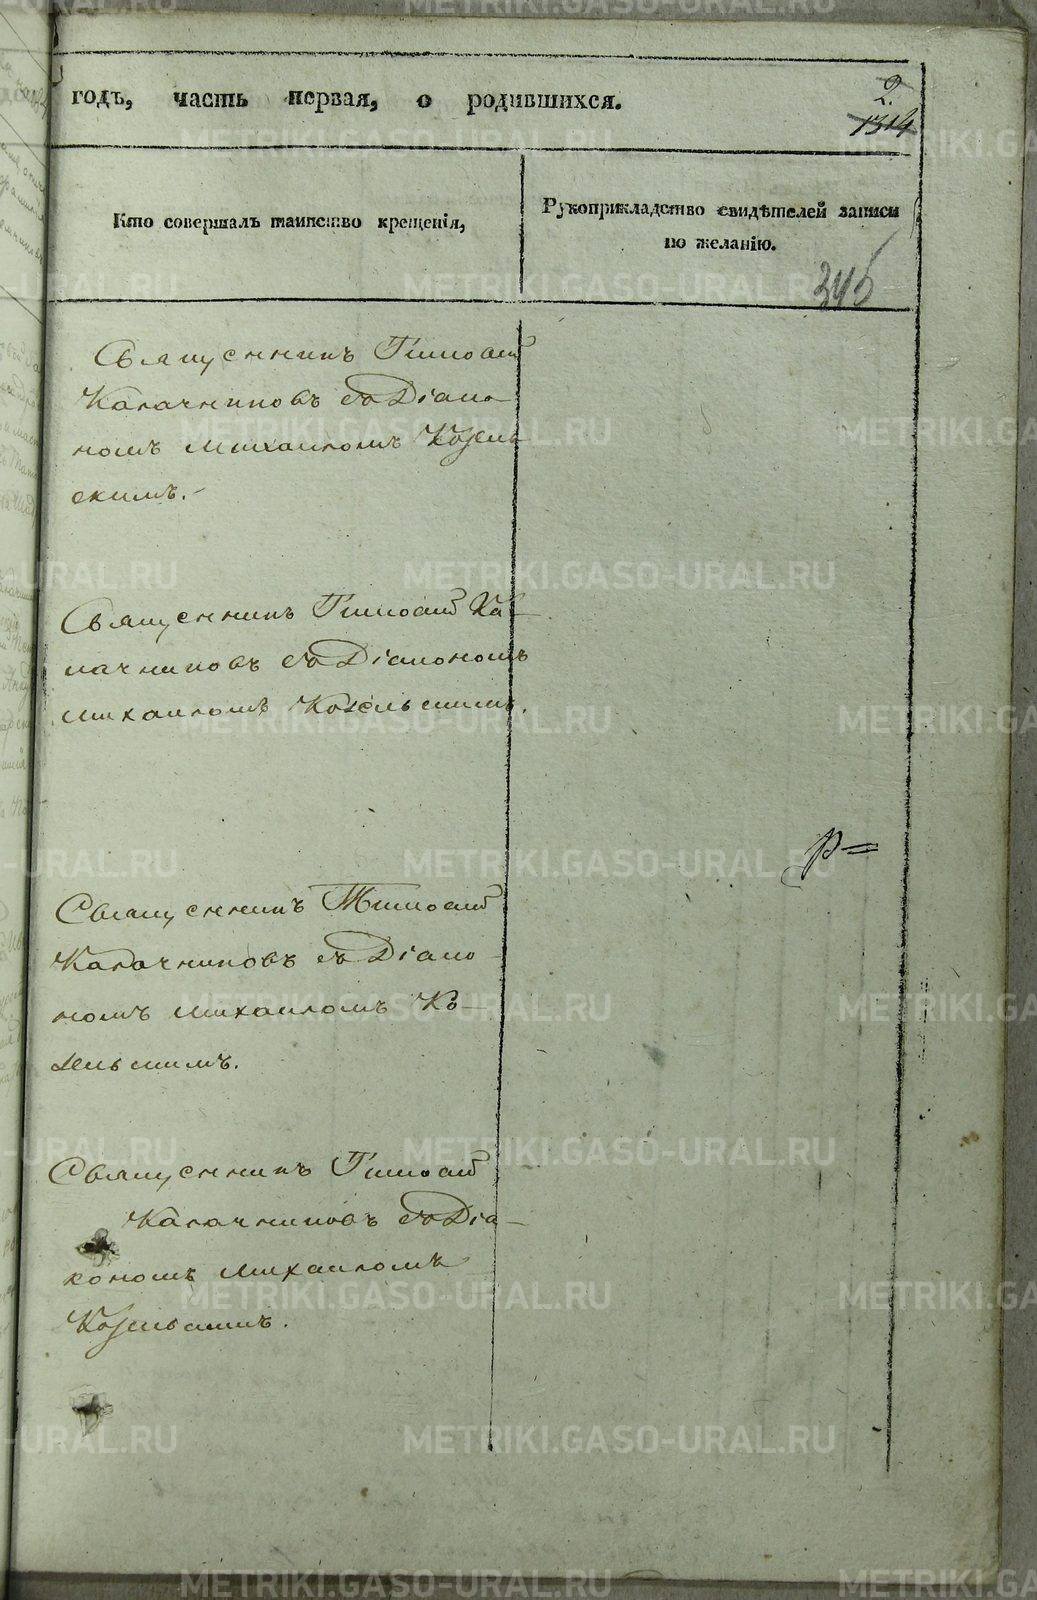 годъ, часть первая, о родившихся.
2.
1314
Кто совершалъ таинство крещенія,
Рукоприкладство свидѣтелей записи
по желанію.
345
Священникъ Тимоѳей
Калачниковъ съ Діако-
номъ Михаиломъ Кожель
скимъ.-
Священникъ Тимоѳей Ка-
лачниковъ съ Діакономъ
Михаиломъ Кожельскимъ.
Священникъ Тимоѳей
Калачниковъ съ Діако
номъ Михаиломъ Ко-
жельскимъ.
Священникъ Тимоѳей
Калачниковъ съ Діа-
кономъ Михаиломъ
Кожельскимъ.
METRIKI.GASO-URAL.RU